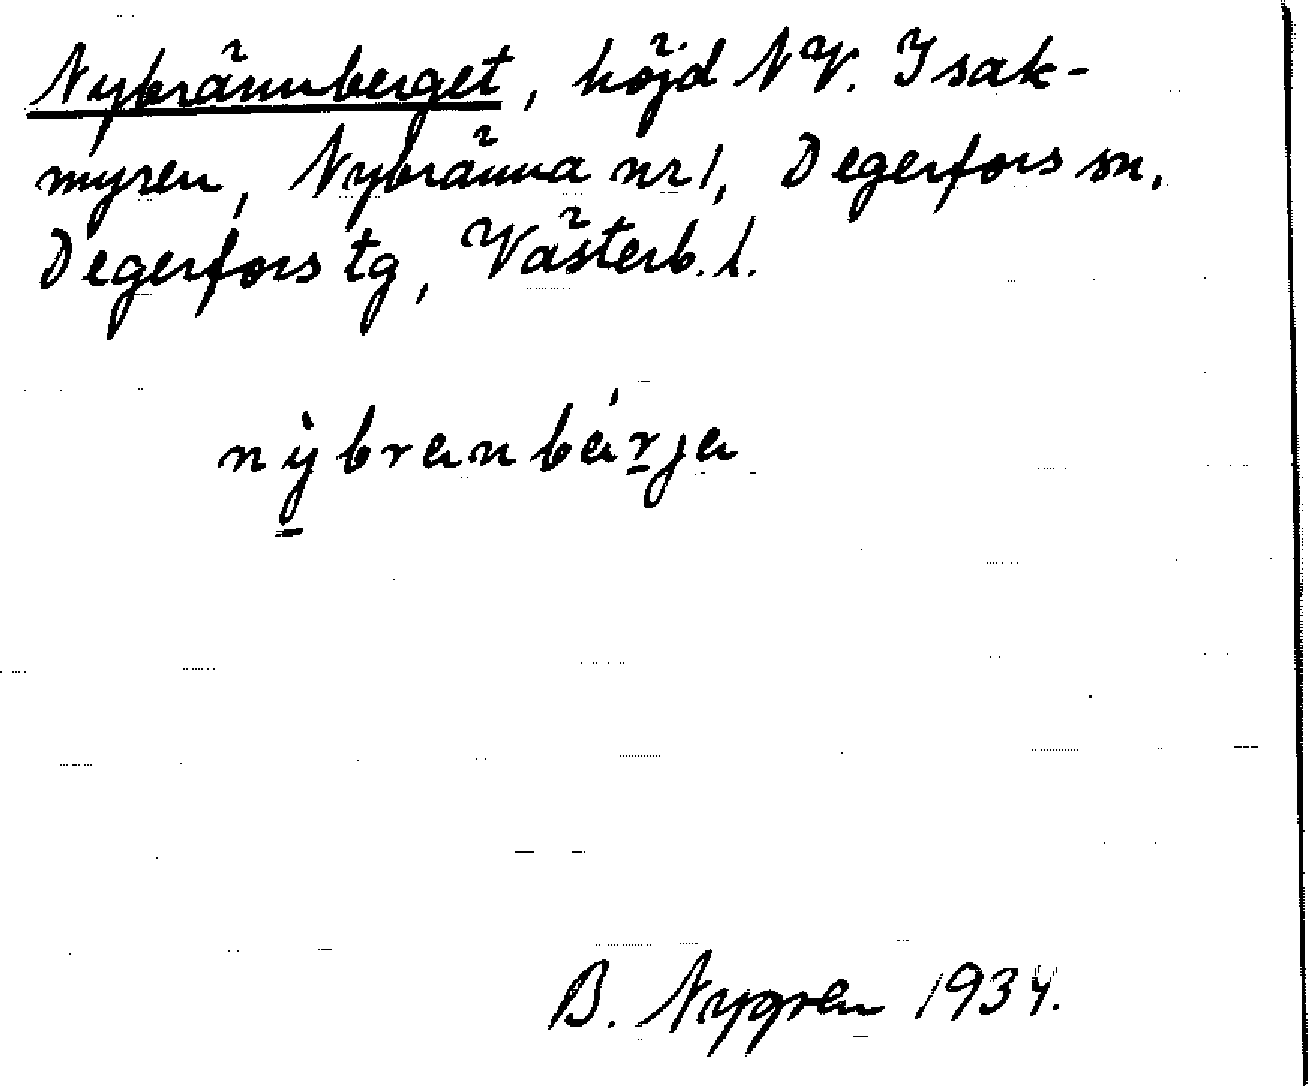 Nybrännberget, höjd NV. Isak-
myren, Nybränna nr 1, Degerfors sn,
Degerfors tg, Västerb. l.
nỳbranbárja
B. Nygren 1934.